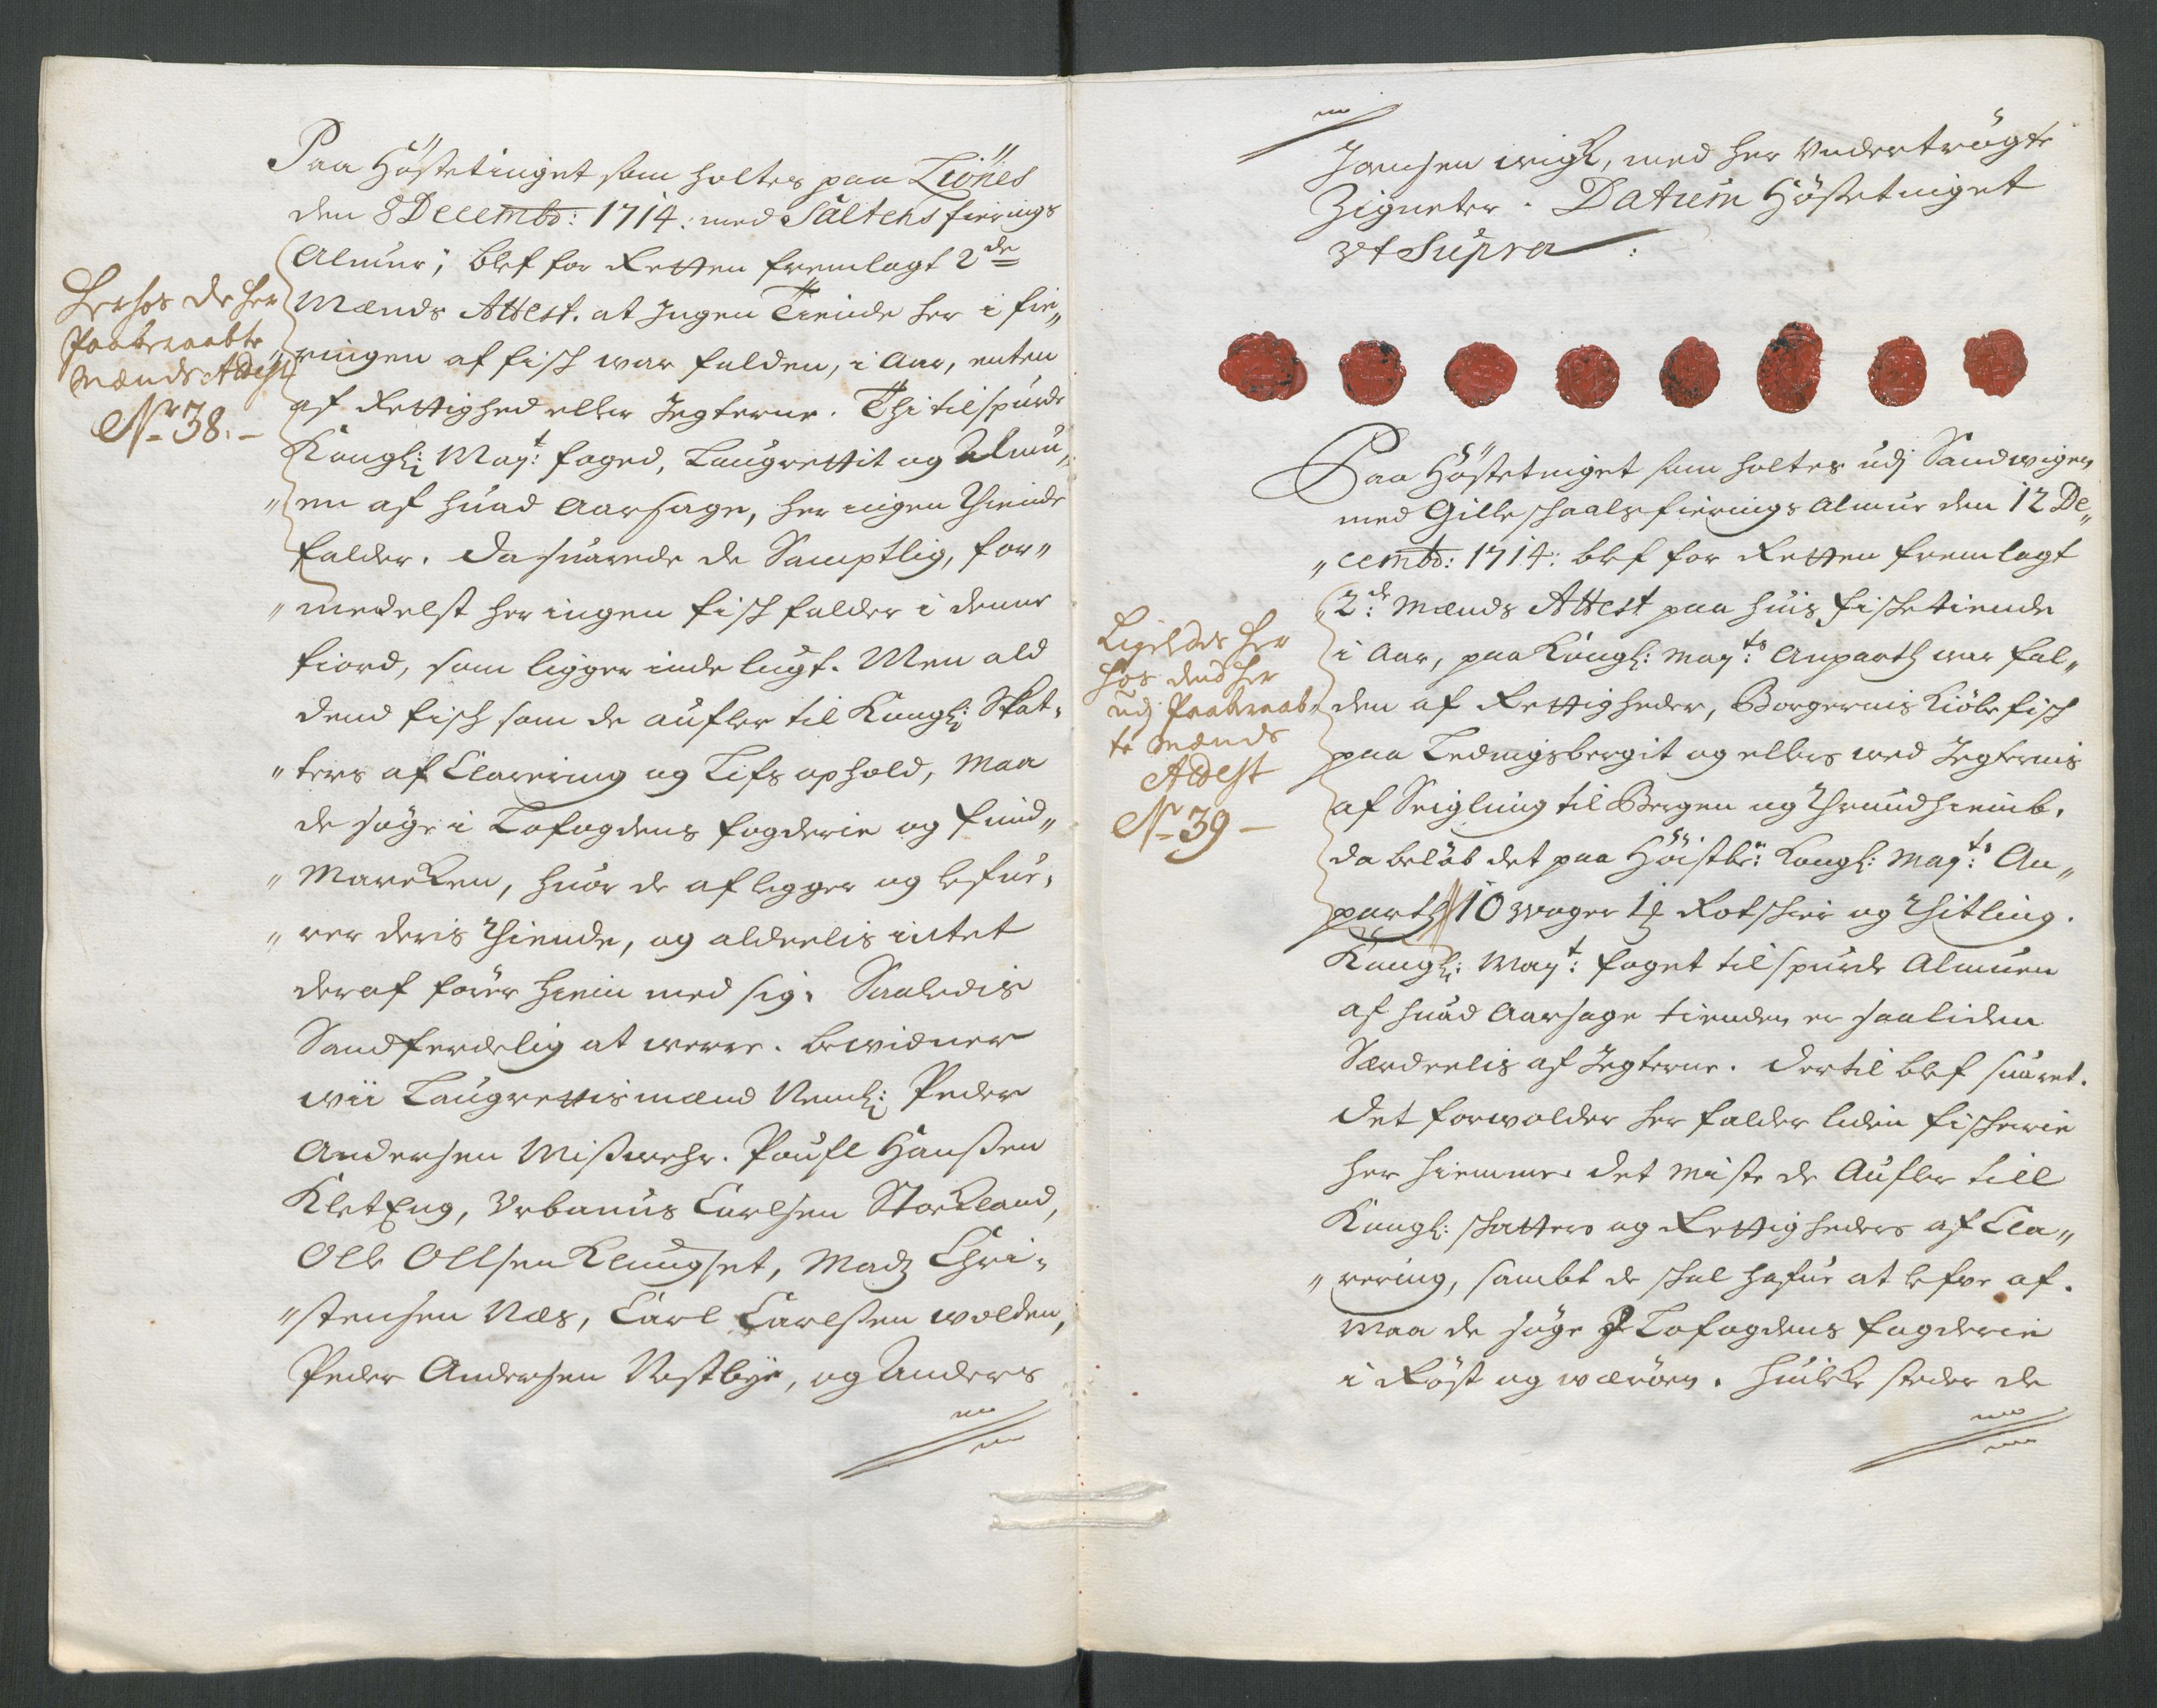 Paa Høstetinget som holtes paa Liønes
den 8 Decembr: 1714. med Saltens fierings
Almue; blef for Retten fremlagt 2de
Mænds Attest. at Ingen Tiende her i fie„
„ringen af fisk war falden, i Aar, enten
af Rettighed eller Jegterne. Thi tilspurde
Kongl: May:t foged, Laugrettit og Almu„
„en af huad Aarsage, her ingen Thiende
falder. da suarede de Samptlig, for„
„medelst her ingen fisk falder i denne
fiord, som ligger inde lugt. Men ald
dend fisk som de aufler til Kongl: Skat„
„ters af Clarering og Lifs ophold, maa
de søge i Lofogdens fogderie og find„
„Marcken, huor de aflegger og lefue„
„rer deris Thiende, og aldeelis intet
deraf fører hiem med sig. Saaledis
Sandferdelig at werre. bewidner
wii Laugrettismænd Neml: Peder
Andersen Misswehr. Poufl Hanssen
Kletteng, Urbanus Carlsen Storland,
Olle Ollsen Klungset, Madz Chri„
„stensen Næs, Carl Carlssen wolden,
Peder Andersen Westbye, og Anders
Herhos de her
Paaberaabte
Mænds Attest
No 38.
Jonsen wigk, med her Undertrögte
Zigneter. Datum Høstetinget
Ut Supra
Paa Høstetinget som holtes udj Sandwigen
med Gilleskaals fierings Almue den 12 De„
„cembr: 1714. blef for Retten fremlagt
2de Mænds Attest paa huis fisketiende
i Aar, paa Kongl: May:ts Anparth war fal„
„den af Rettigheder, Borgernis Kiøbe fisk
paa Ledingsbergit og ellers wed Jegternis
af Seigling til Bergen og Thrundhiemb.
da beløb det paa Høistbr: Kongl: May:ts An„
parth 10 woger 1 Rotskier og Thitling.
Kongl: May:t foget tilspurde Almuen
af huad Aarsage tienden er saa liden
Særdeelis af Jegterne. dertil blef suaret.
det forwolder her falder liden fiskerie
her hiemme det meste de Aufler till
Kongl: skatters og Rettigheders af Cla„
„rering, sambt de skal hafue at lefve af.
Maa de søge I Lofogdens fogderie
i Røst og wærøen. huilcke steder de
Ligeledes her
hos dend her
udj Paaberaab„
te Mænds
Attest
No 39